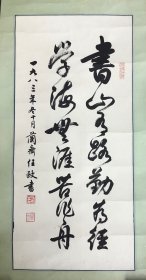 書山有路勤為径
学海無涯苦作舟
一九八三年冬十月蘭齋任政書